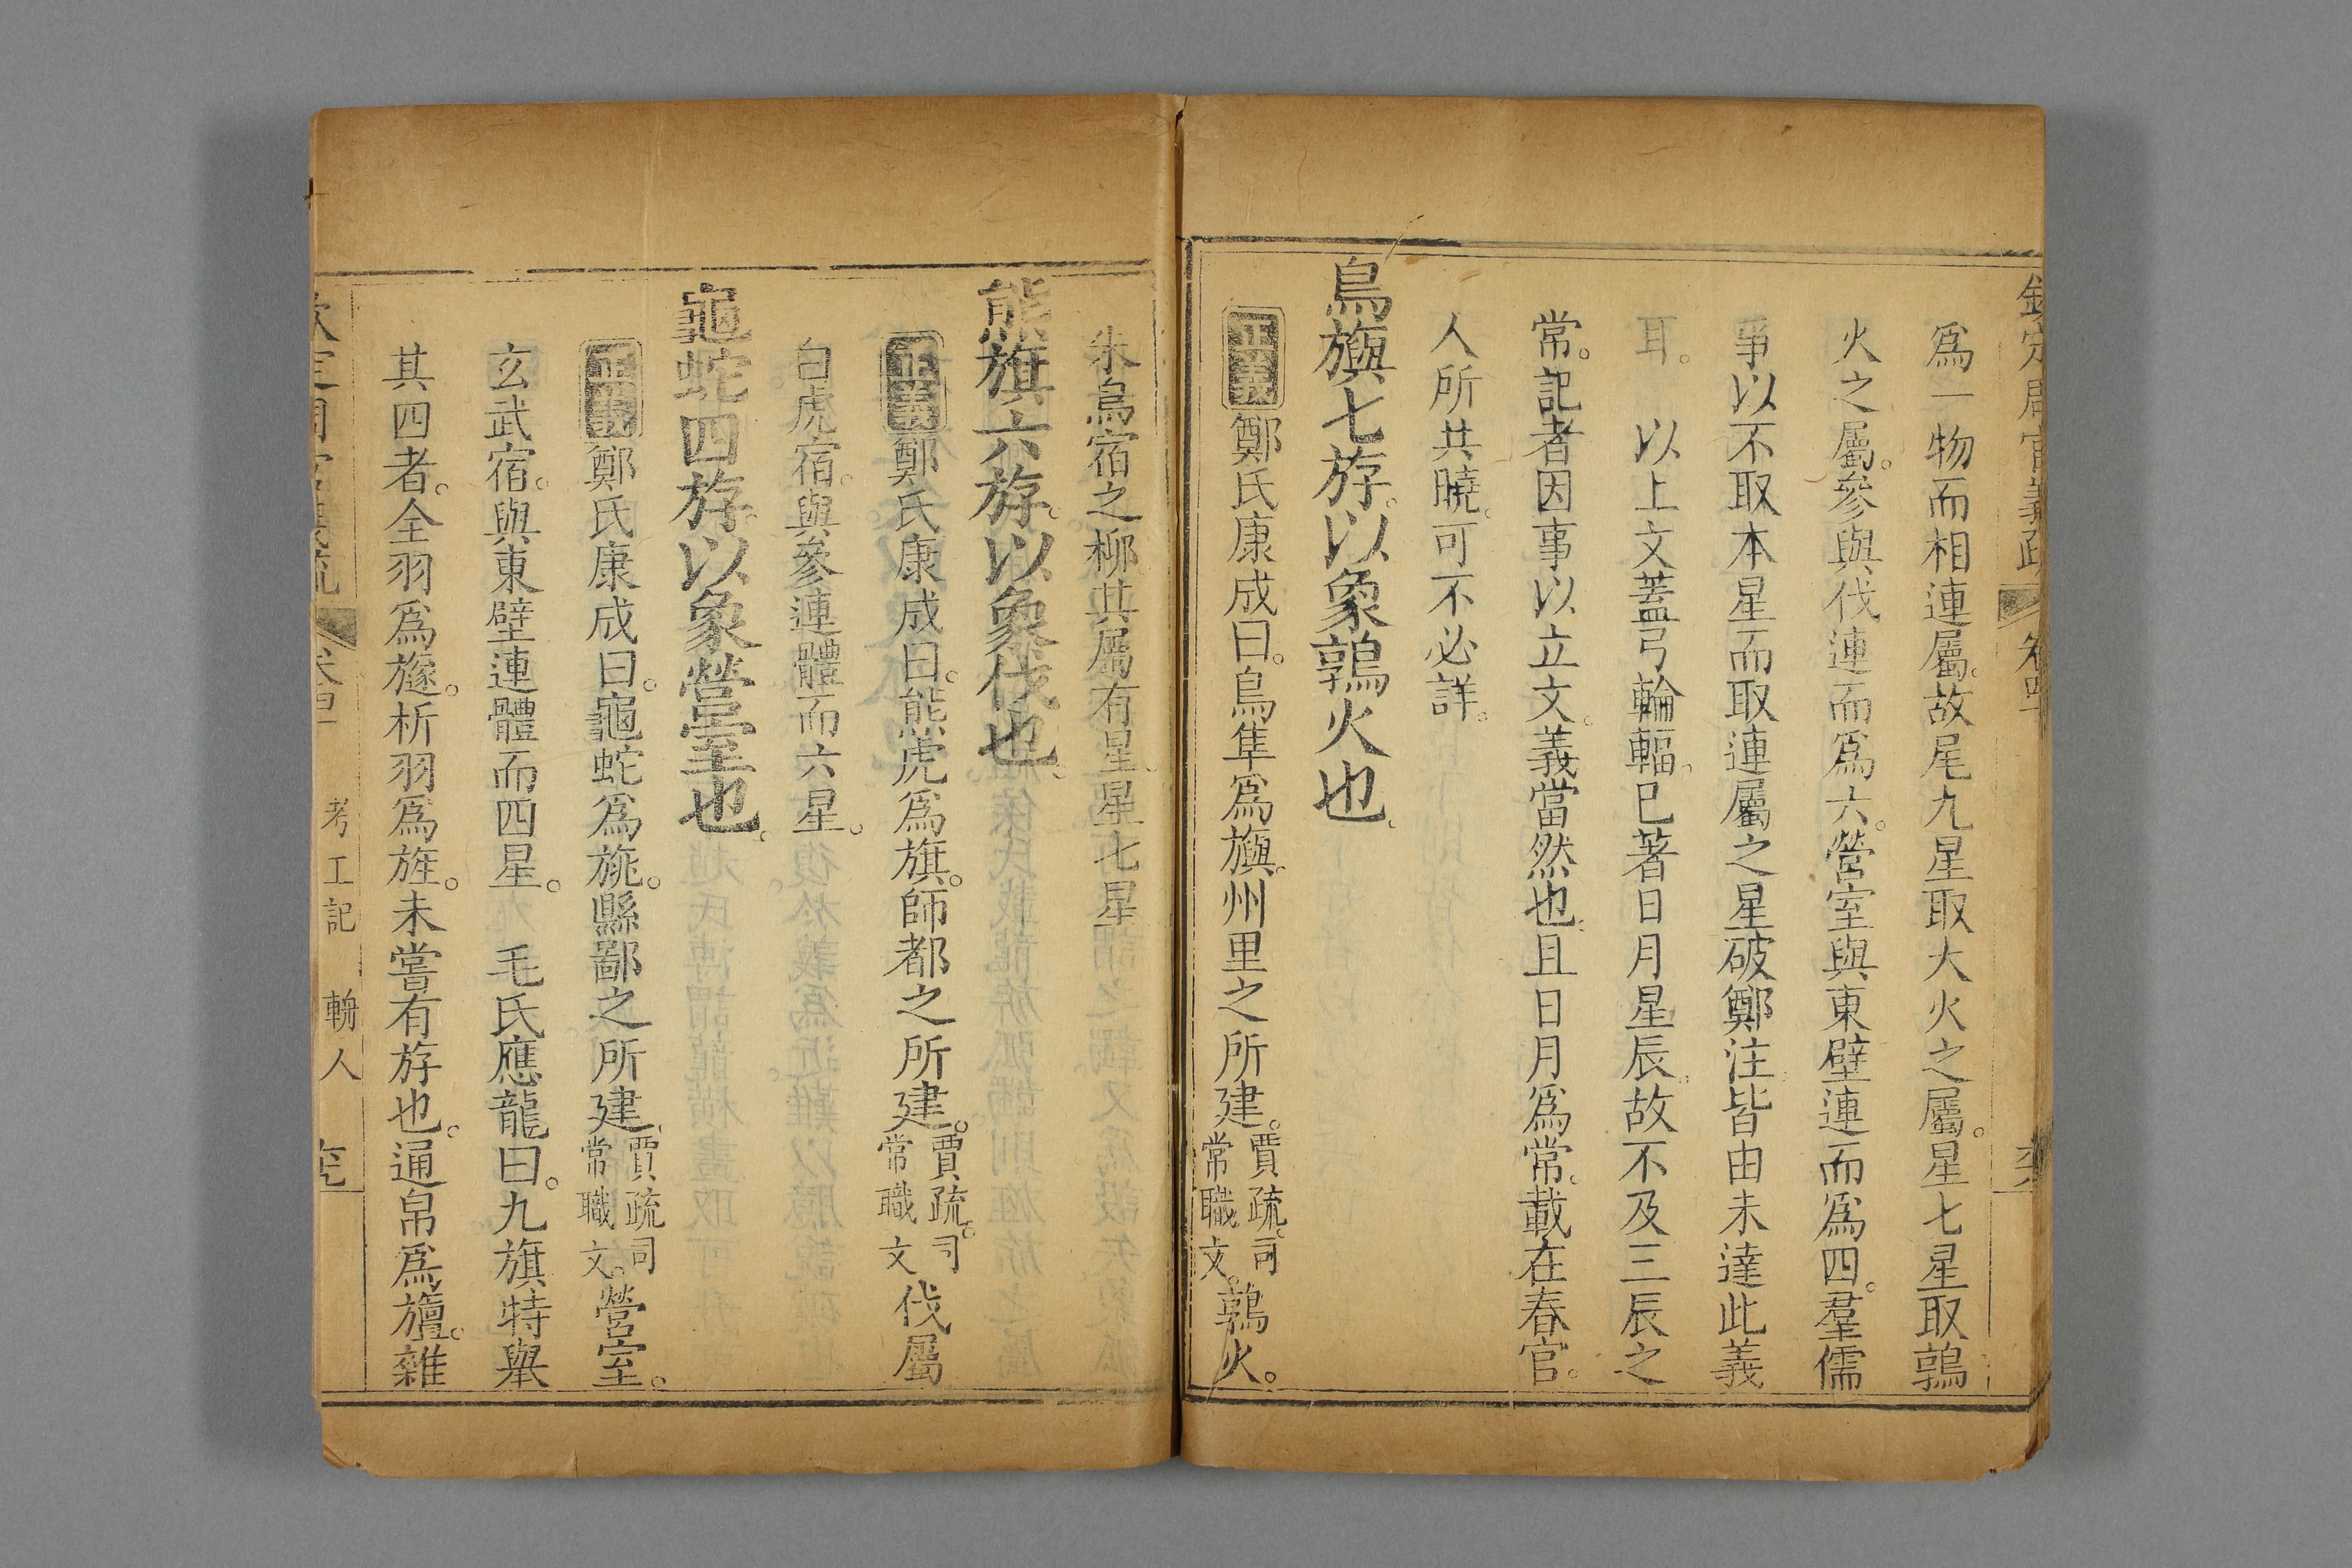 欽定周官義疏 卷四
爲一物而相連屬。故尾九星取大火之屬。星七星取鶉
火之屬。參與伐連而爲六。營室與東壁連而爲四。羣儒
爭以不取本星而取連屬之星破鄭注皆由未達此義
耳。 以上文蓋弓輪輻。已著日月星辰。故不及三辰之
常。記者因事以立文。義當然也。且日月爲常。載在春官。
人所共曉。可不必詳。
鳥旟七斿。以象鶉火也。
正義鄭氏康成曰。鳥隼爲旟。州里之所建。賈疏。司常職文。鶉火。
朱鳥宿之柳。其屬有星。星七星
熊旗六斿。以象伐也。
正義鄭氏康成曰。熊虎爲旗。師都之所建。賈疏。司常職文 伐屬
白虎宿。與參連體而六星。
龜蛇四斿。以象營室也。
正義鄭氏康成曰。龜蛇爲旐。縣鄙之所建。賈疏司常職文。營室。
玄武宿。與東壁連體而四星。 毛氏應龍曰。九旗特舉
其四者。全羽爲旞。析羽爲旌。未嘗有斿也。通帛爲旜。雜
考工記 輈人